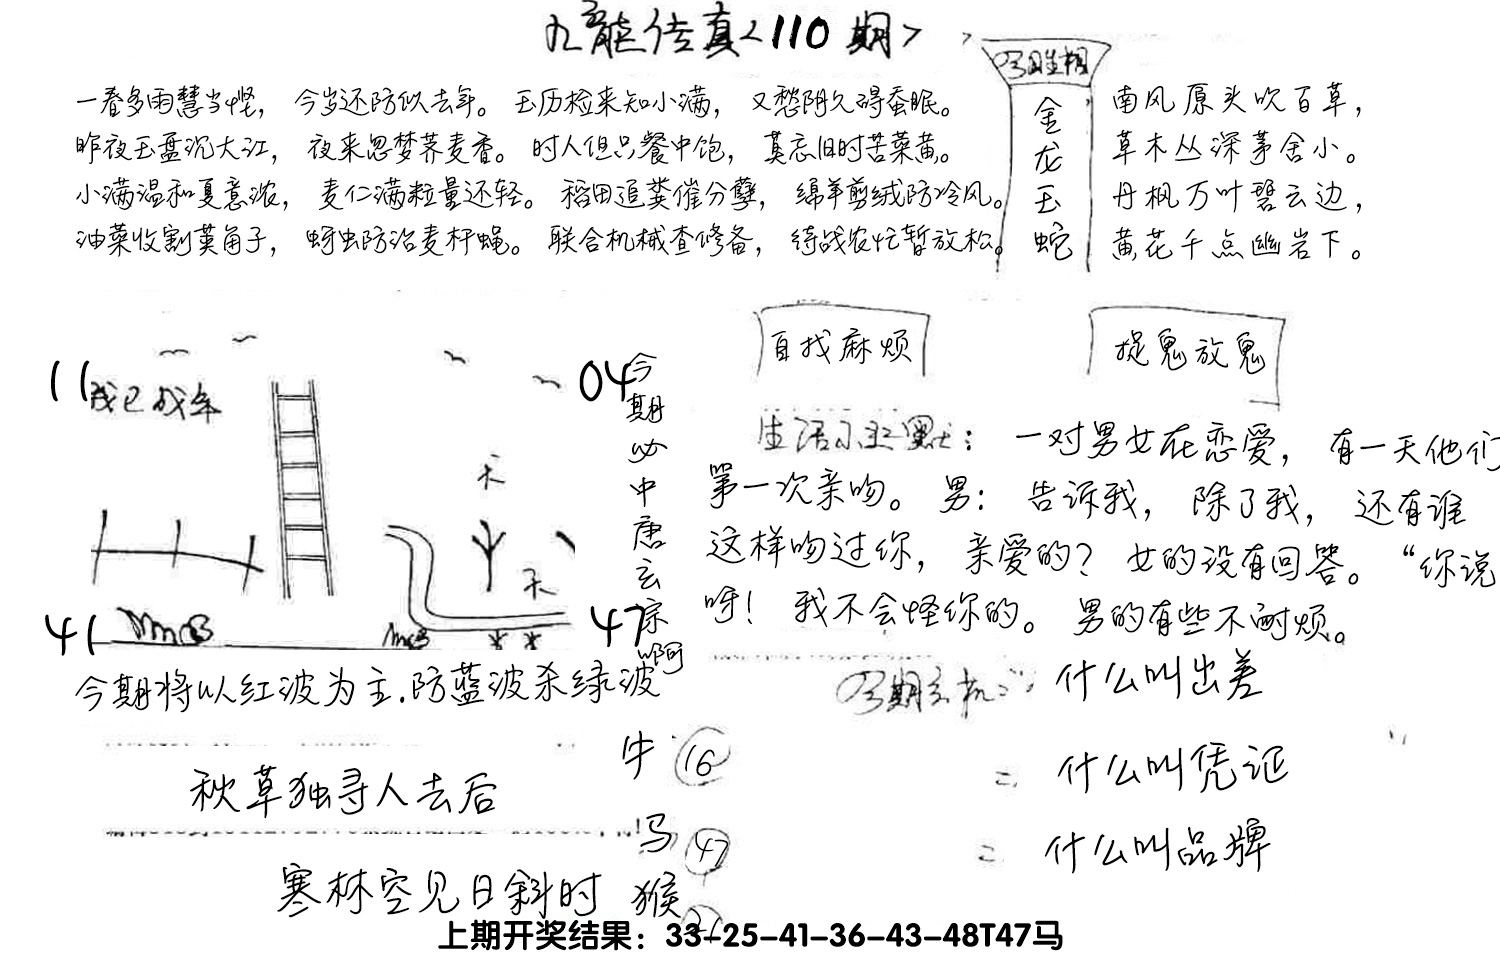 九龍传真<110期>
一春多雨慧当悭,今岁还防似去年。玉历检来知小满,又愁阴久碍蚕眠。
昨夜玉盘沉大江,夜来忽梦荞麦香。时人但只餐中饱,莫忘旧时苦菜黄。
小满温和夏意浓,麦仁满粒量还轻。稻田追粪催分孽,绵羊剪绒防冷风。
油菜收割荚角子,蚜虫防治麦杆蝇。联合机械查修备,待战农忙暂放松。
金
龙
玉
蛇
南风原头吹百草,
草木丛深茅舍小。
丹枫万叶碧云边,
黄花千点幽岩下。
11
04
41
47
今期必中唐玄宗啊
今期将以红波为主.防蓝波杀绿波
自找麻烦
捉鬼放鬼
一对男女在恋爱,有一天他们
第一次亲吻。男:告诉我,除了我,还有谁
这样吻过你,亲爱的?女的没有回答。“你说
呀!我不会怪你的。男的有些不耐烦。
什么叫出差
什么叫凭证
什么叫品牌
秋草独寻人去后
寒林空见日斜时
牛 16
马 47
猴
上期开奖结果:33-25-41-36-43-48T47马